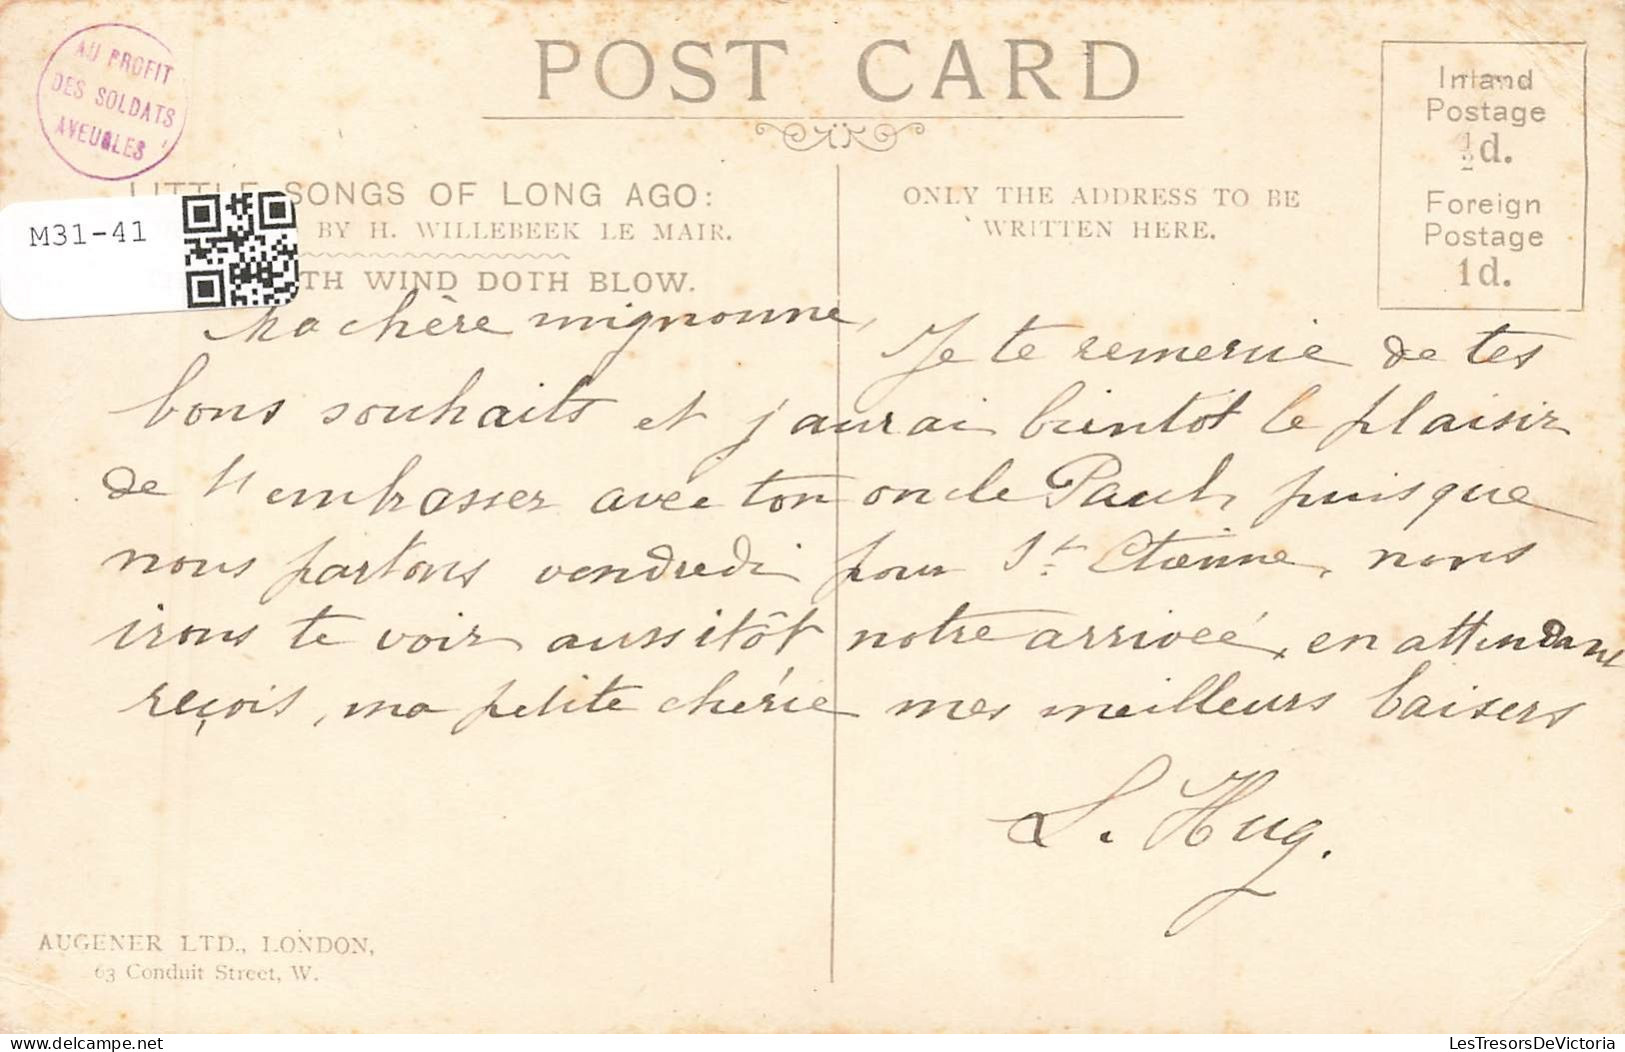 AU PROFIT
DES SOLDATS
AVEUGLES
POST CARD
Inland
Postage
½d.
Foreign
Postage
1d.
LITTLE SONGS OF LONG AGO:
BY H. WILLEBEEK LE MAIR.
TH WIND DOTH BLOW.
M31-41
ONLY THE ADDRESS TO BE
WRITTEN HERE.
Ma chère mignonne,
Je te remercie de tes
bons souhaits et j'aurai bientôt le plaisir
de t'embrasser avec ton oncle Paul, puisque
nous partons vendredi pour St. Etienne, nous
irons te voir aussitôt notre arriveé, en attendant
reçois, ma petite chérie mes meilleurs baisers
L. Hug.
AUGENER LTD., LONDON,
63 Conduit Street, W.
LesTresorsDeVictoria.com